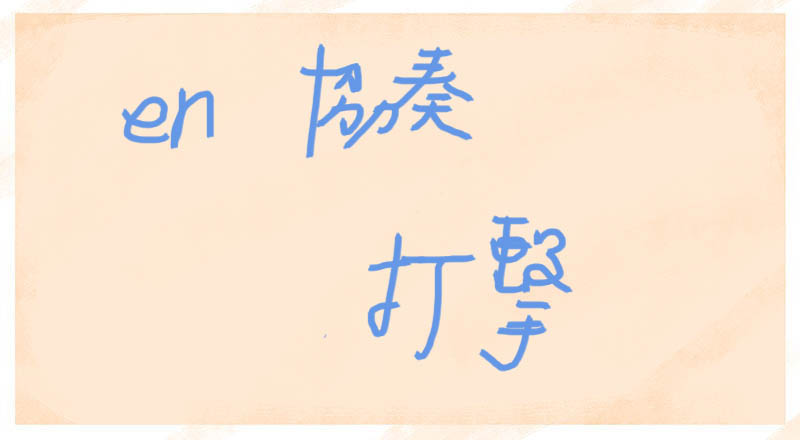 en 協奏
打撃